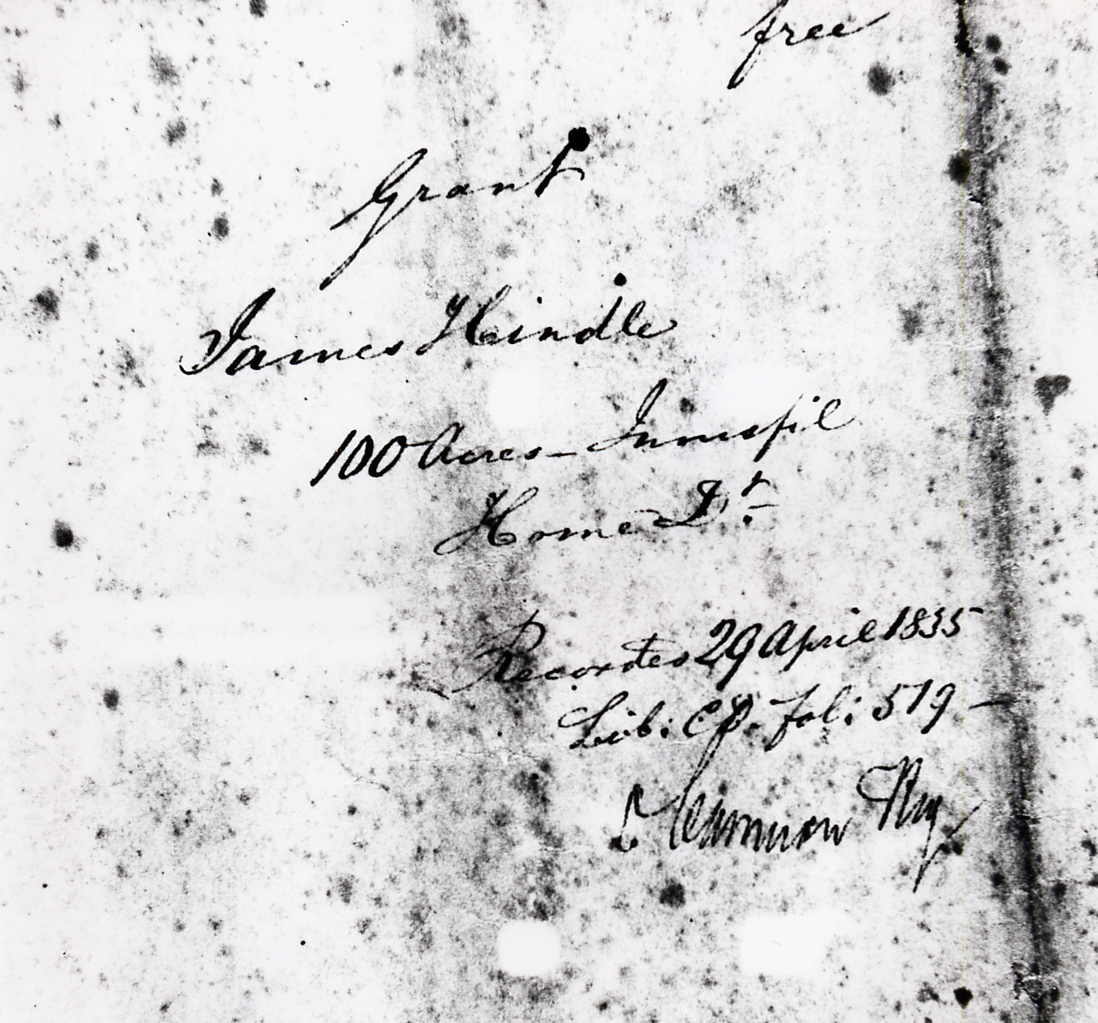 free
Grant
James Hindle
100 Acres – Innisfil
Home Dt
Recorded 29 April 1835
Lib: CP. Fol: 519 –
D Cameron Reg